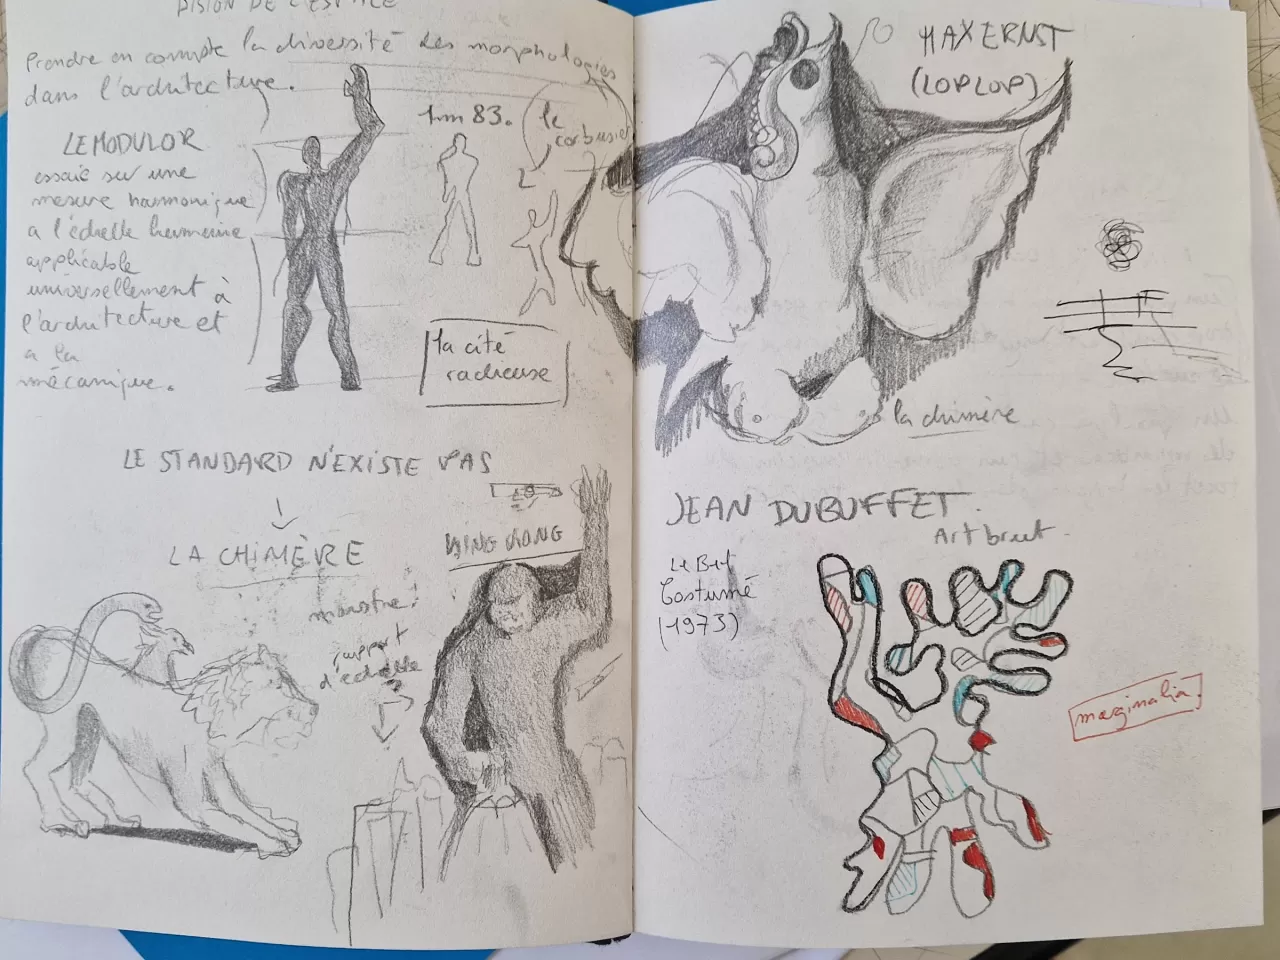 VISION DE L'ESPACE
Prendre en compte la diversité des morphologies
dans l'architecture.
LE MODULOR
essaie sur une
mesure harmonique
a l'échelle humaine
applicable
universellement à
l'architecture et
a la
mécanique.
1m 83.
le
corbusier
la cité
radieuse
LE STANDARD N'EXISTE PAS
LA CHIMÈRE
monstre!
rapport
d'échelle
KING KONG
MAX ERNST
(LOPLOP)
la chimère
JEAN DUBUFFET.
Art brut.
Le Bel
Costumé
(1973)
marginalia